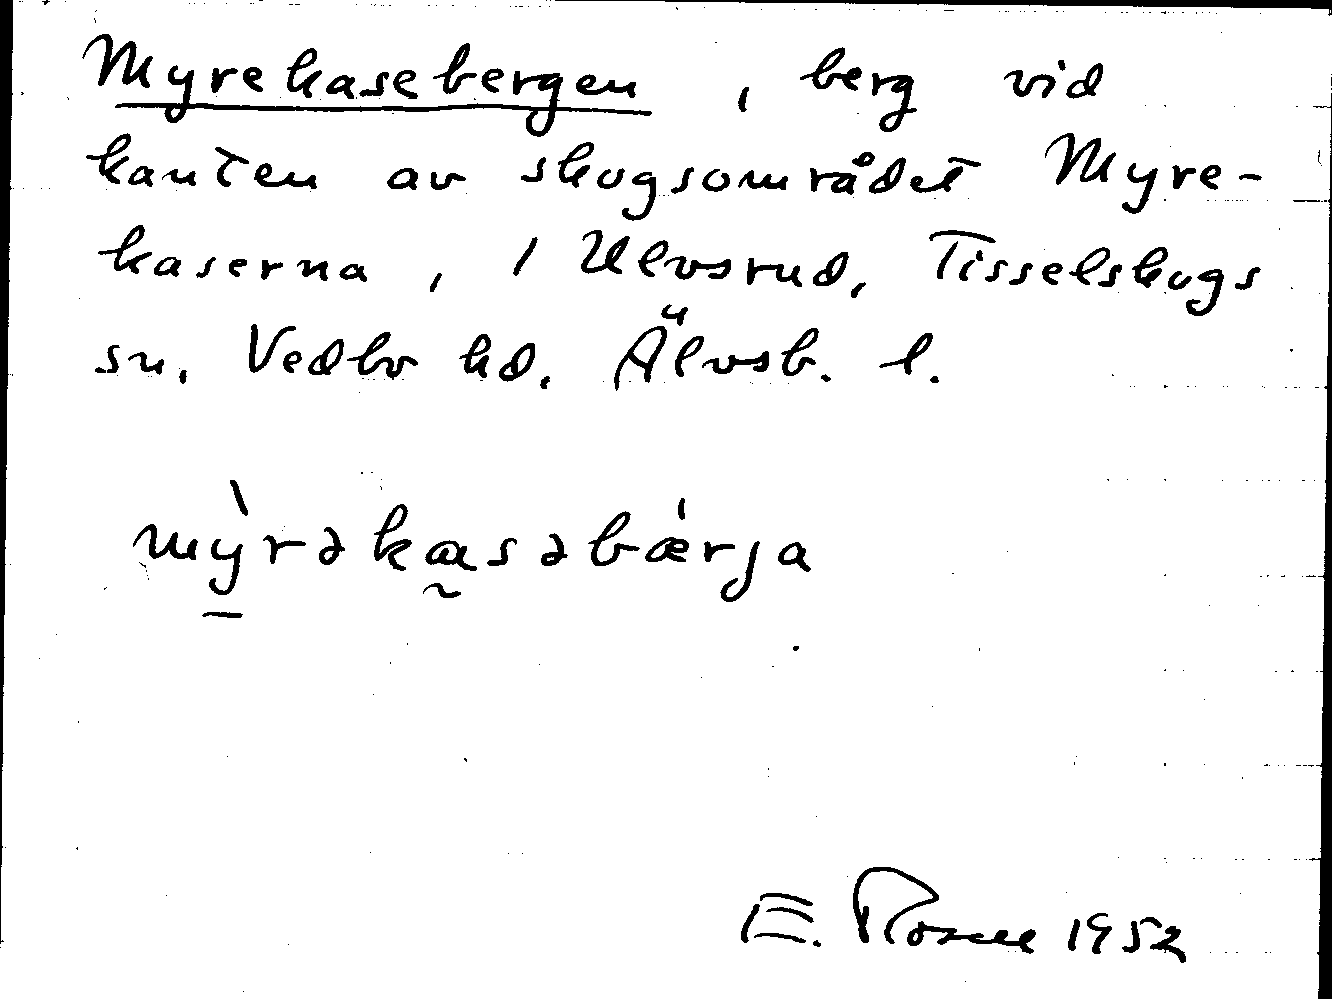 Myrekasebergen, berg vid
kanten av skogsområdet Myre-
kaserna, i Ulvsrud, Tisselskogs
sn, Vedbo hd, Älvsb. l.
mỳ̱rəka̰səbǽrja
E. Rosell 1952